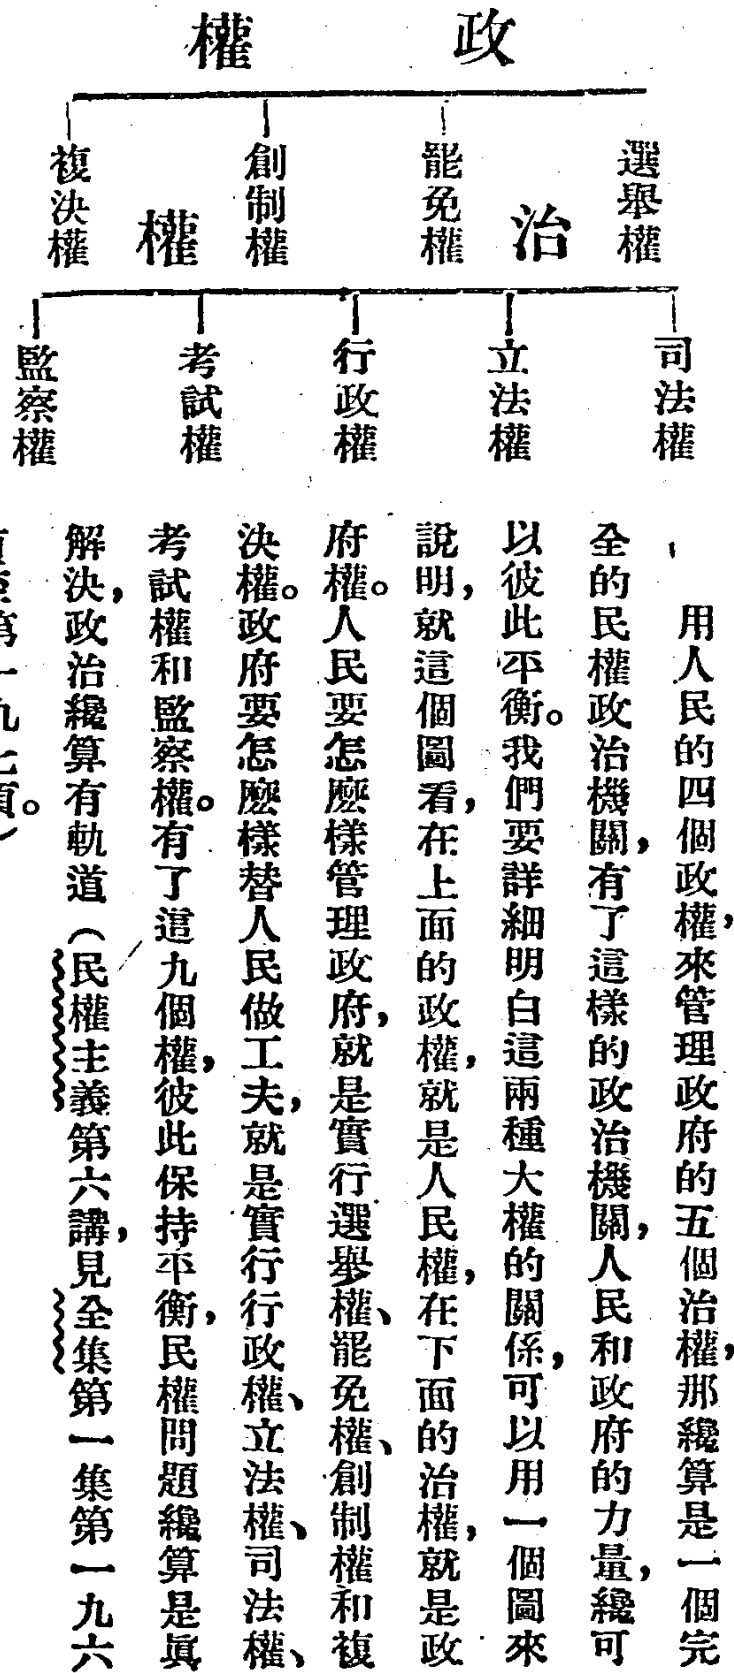 政權
選舉權
罷免權
創制權
複決權
治權
司法權
立法權
行政權
考試權
監察權
用人民的四個政權，來管理政府的五個治權，那纔算是一個完
全的民權政治機關，有了這樣的政治機關，人民和政府的力量，纔可
以彼此平衡。我們要詳細明白這兩種大權的關係，可以用一個圖來
說明，就這個圖看，在上面的政權，就是人民權，在下面的治權，就是政
府權。人民要怎麽樣管理政府，就是實行選舉權、罷免權、創制權和複
決權。政府要怎麽樣替人民做工夫，就是實行行政權、立法權、司法權、
考試權和監察權。有了這九個權，彼此保持平衡，民權問題纔算是眞
解決，政治纔算有軌道（民權主義第六講，見全集第一集第一九六
頁至第一九七頁。）